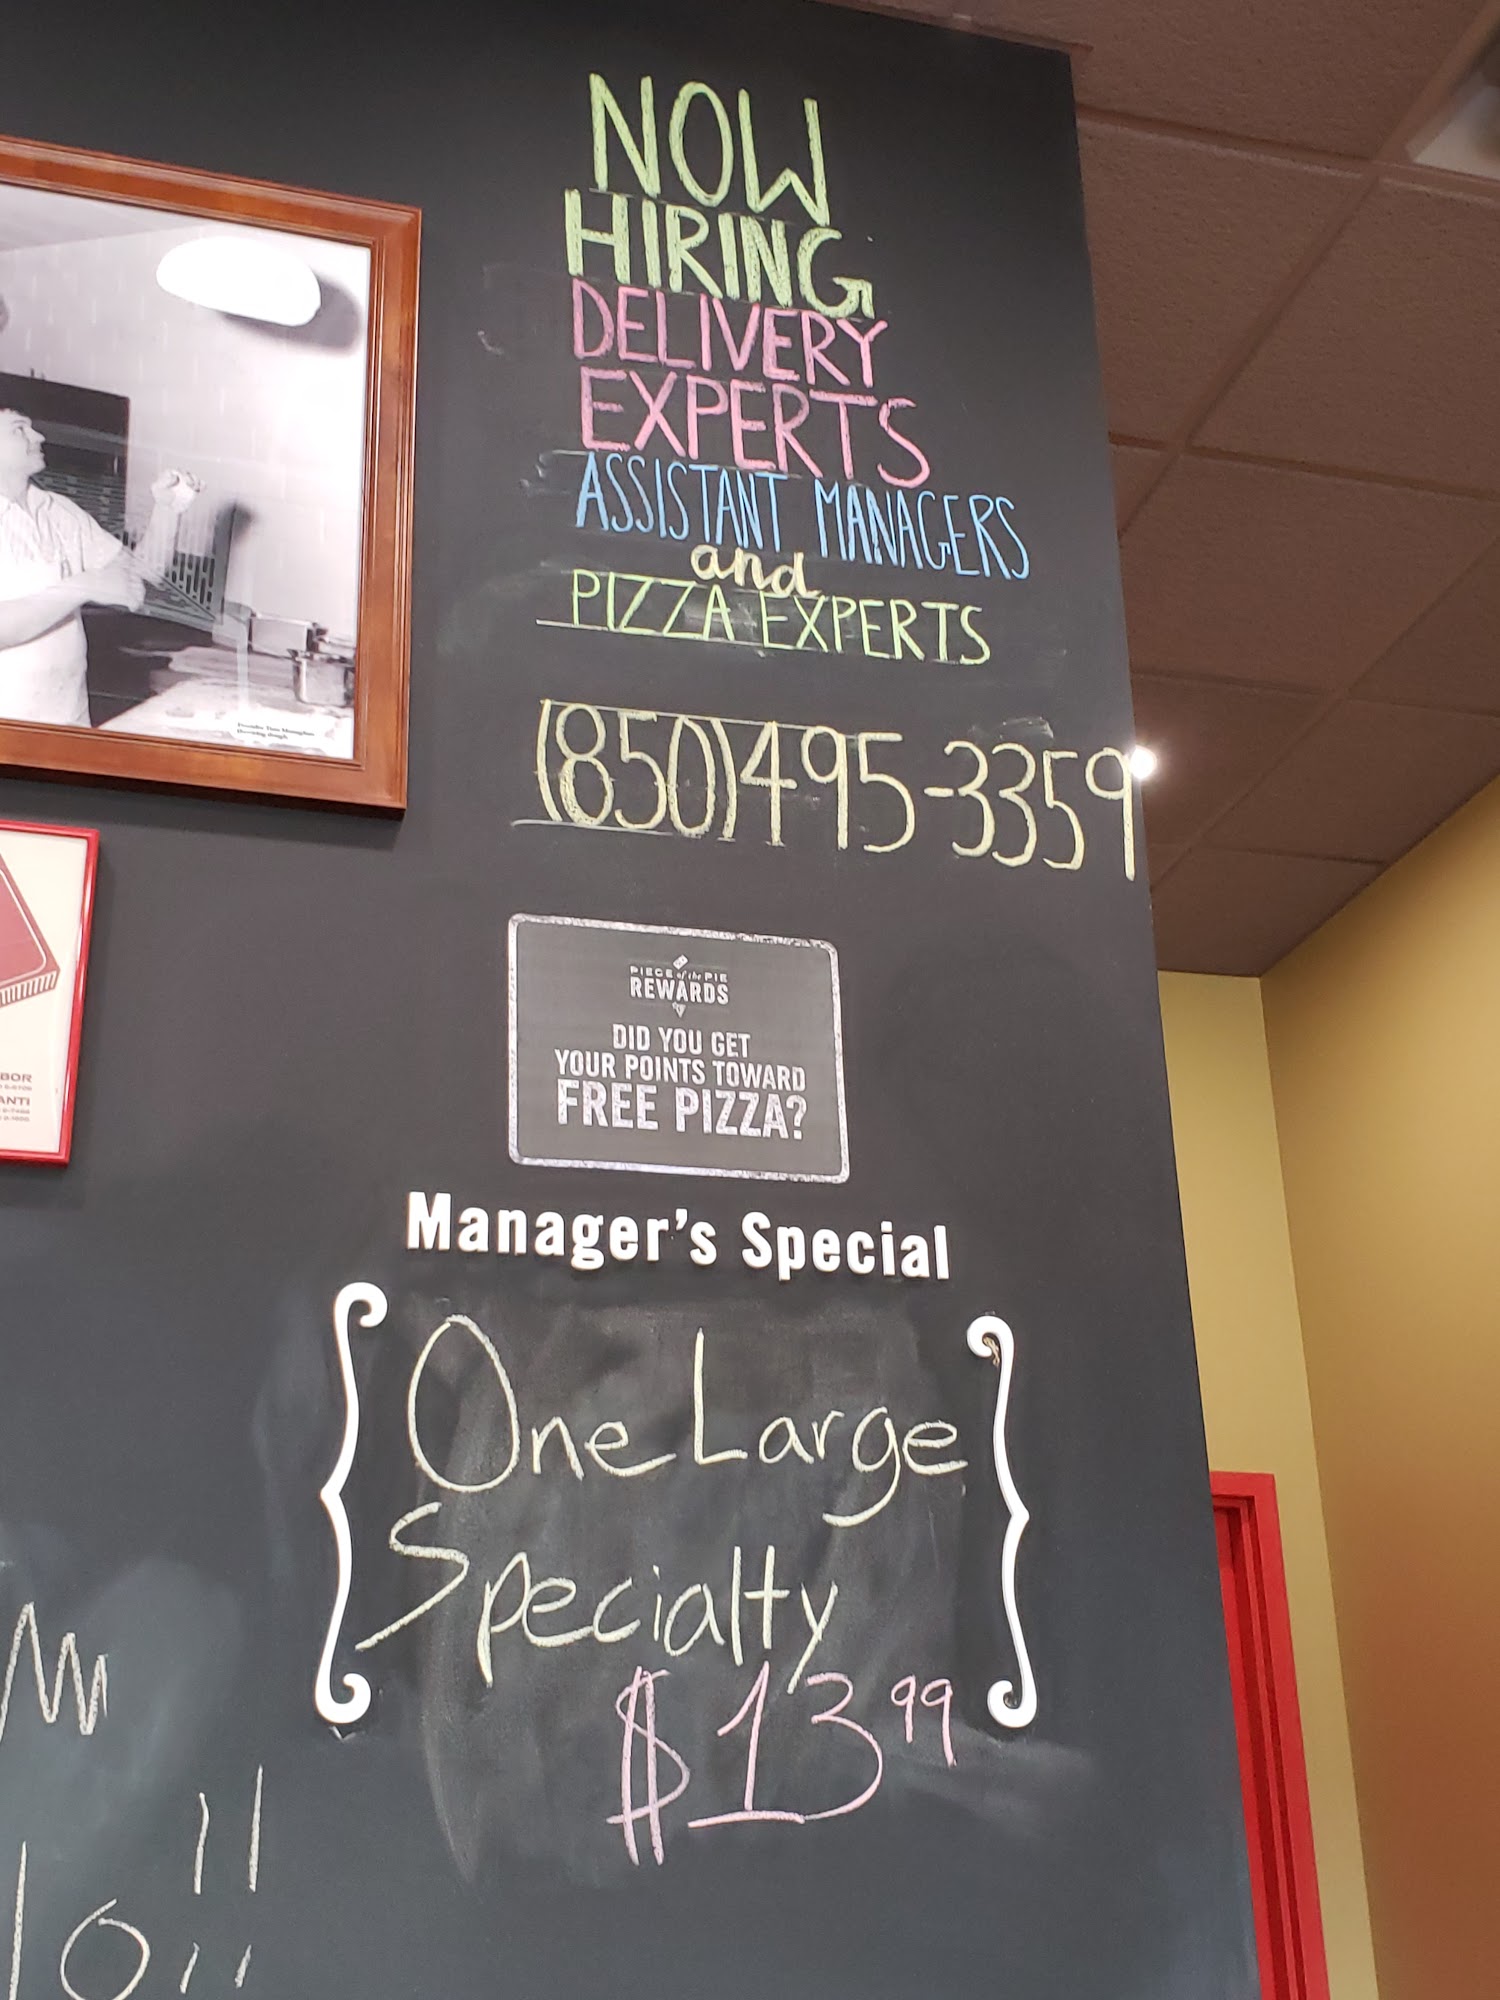 NOW
HIRING
DELIVERY
EXPERTS
ASSISTANT MANAGERS
and
PIZZA EXPERTS
(850)495-3359
PIECE of the PIE
REWARDS
DID YOU GET
YOUR POINTS TOWARD
FREE PIZZA?
BOR
ANTI
Manager's Special
One Large
Specialty
$13.99
10!!